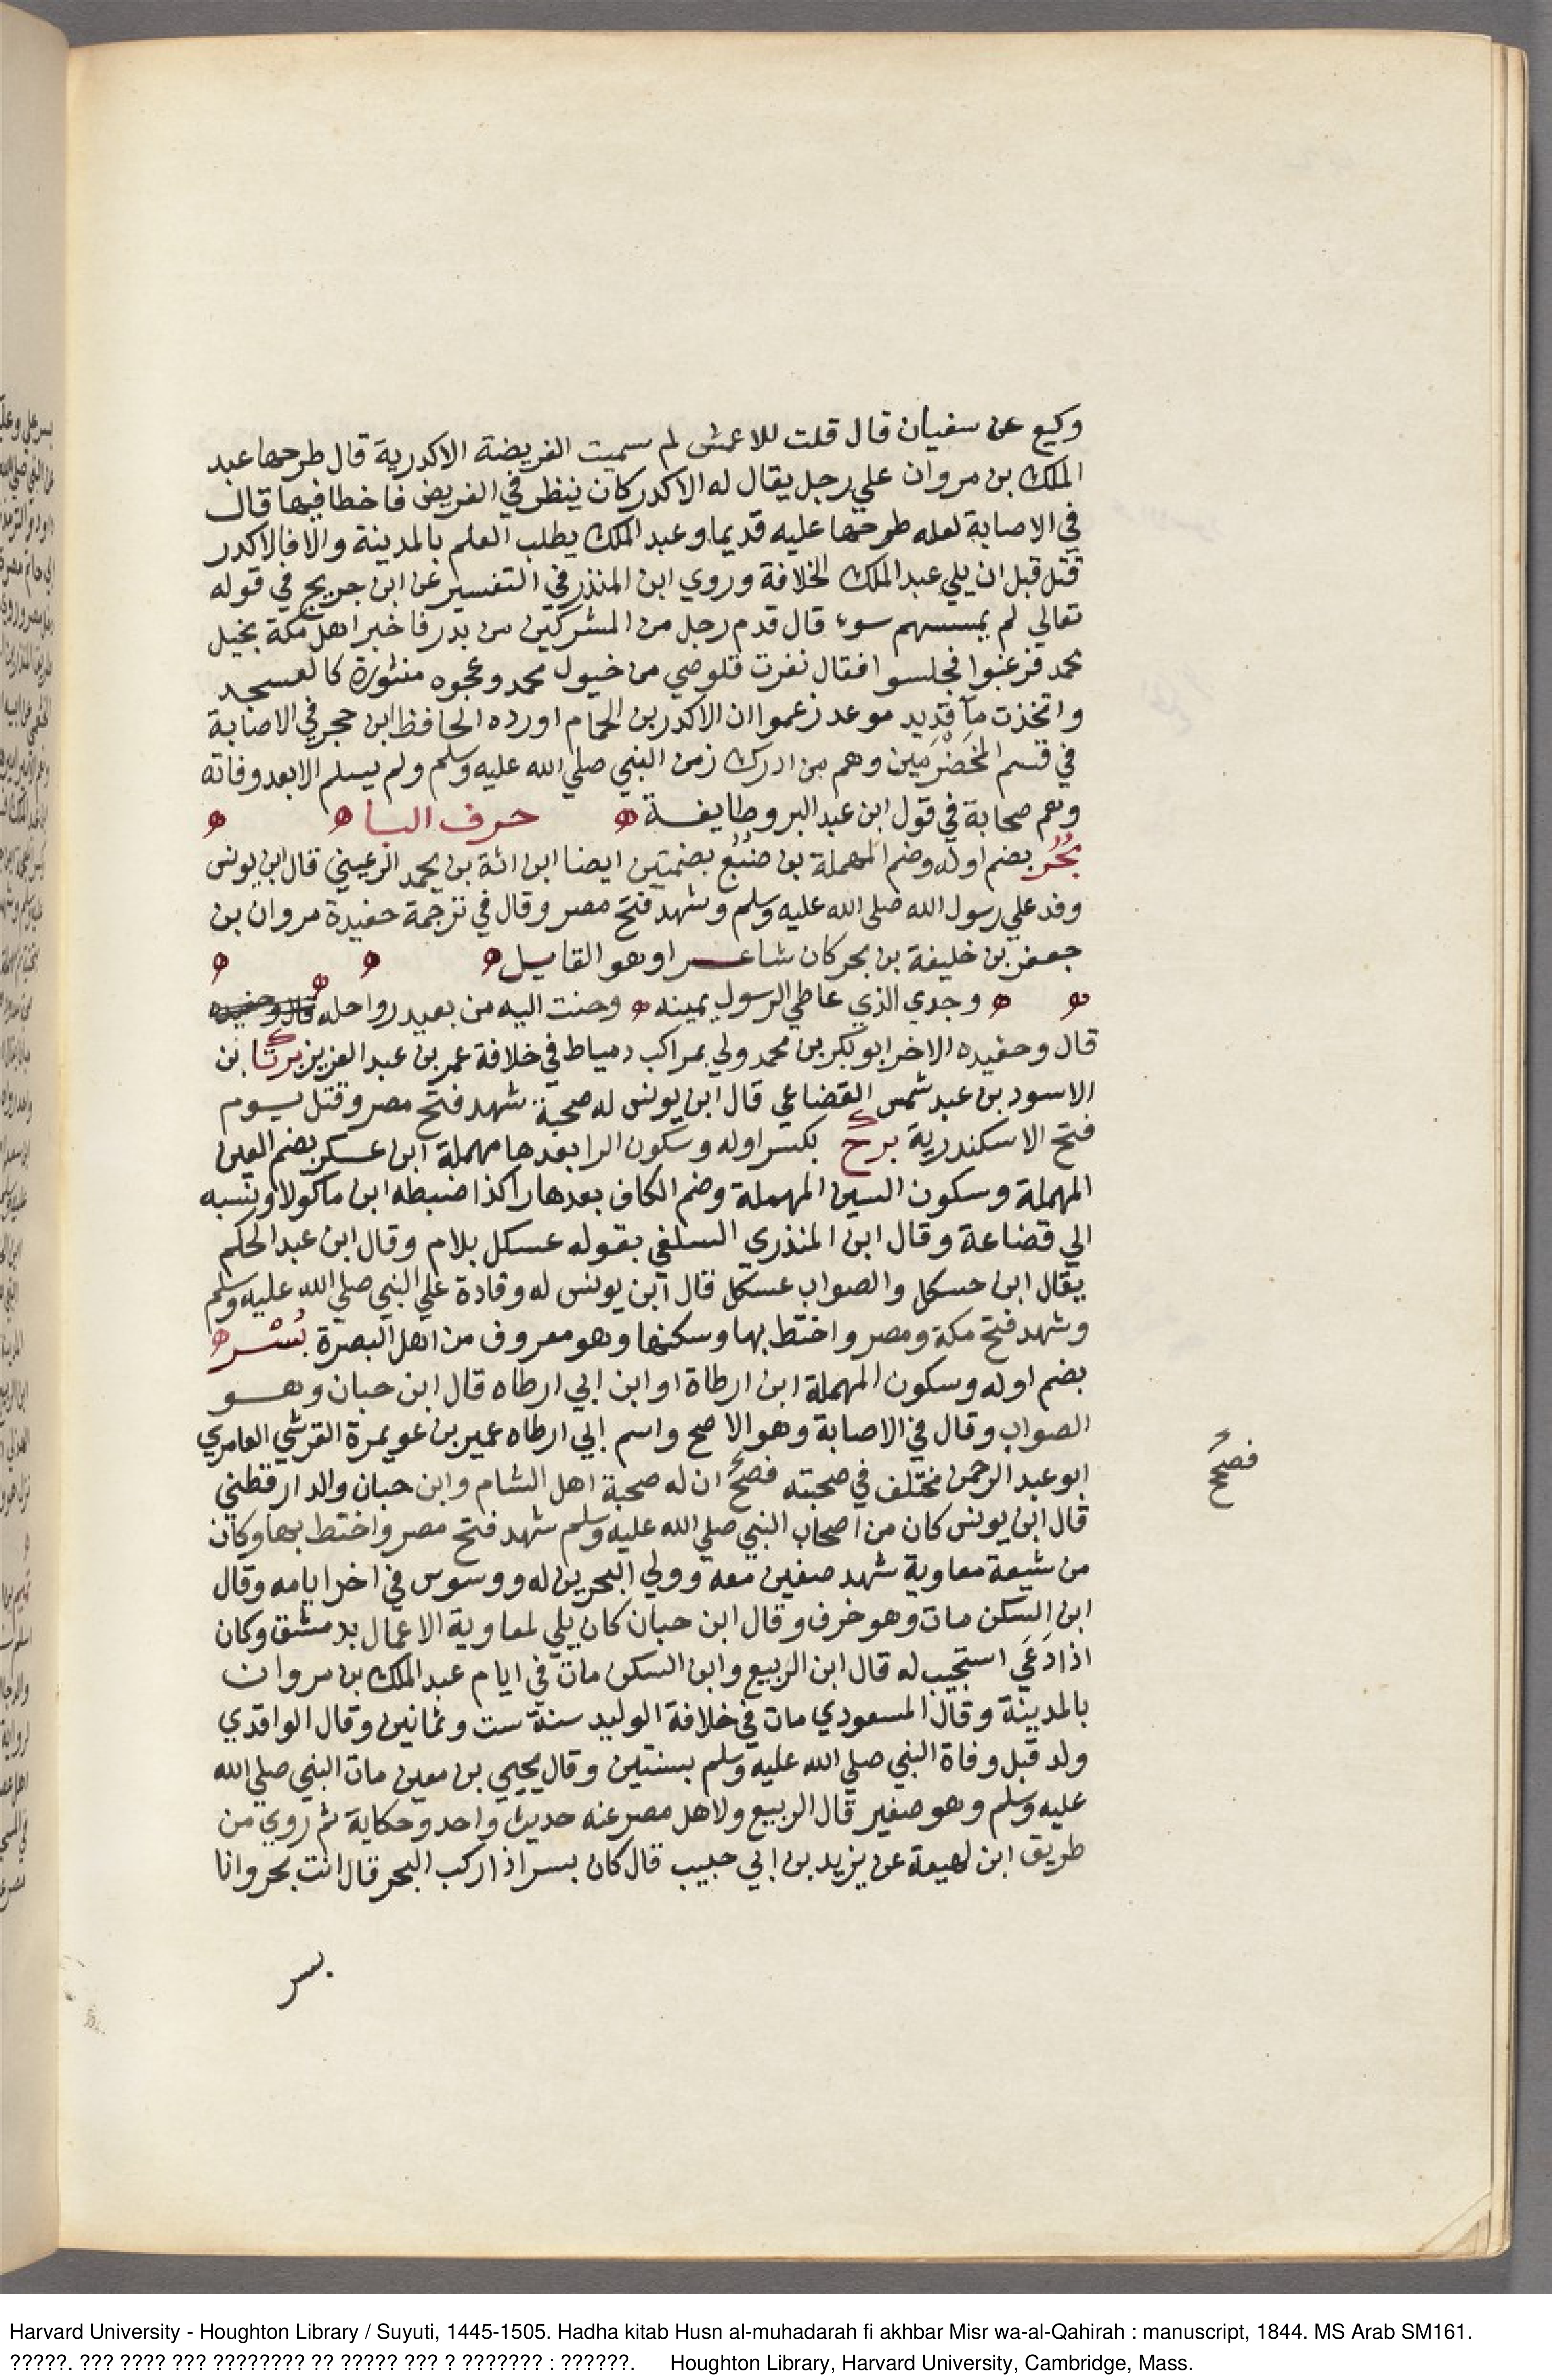 وكيع عن سفيان قال قلت للاعمش لم سميت الفريضة الاكدرية قال طرحها عبد
الملك بن مروان علي رجل يقال له الاكدر كان ينظر في الفريض فاخطا فيها قال
في الاصابة لعله طرحها عليه قديما وعبد الملك يطلب العلم بالمدينة والا فالاكدر
قتل قبل ان يلي عبد الملك الخلافة وروي ابن المنذر في التفسير عن ابن جريج في قوله
تعالي لم يمسسهم سوء قال قدم رجل من المشركين من بدر فاخبر اهل مكة بخيل
محمد فرعبوا فجلسوا فقال نفرت قلوصي من خيول محمد وعجوه منثورة كالعسجد
واتخذت مآ قديد موعد زعموا ان الاكدر بن الحمام اورده الحافظ ابن حجر في الاصابة
في قسم المخضرمين وهم من ادرك زمن النبي صلي الله عليه وسلم ولم يسلم الا بعد وفاته
وهم صحابة في قول ابن عبد البر وطايفة ه حرف البا ه ه
بُحُر بضم اوله وضم المهملة بن ضُبُع بضمتين ايضا ابن اتة بن يحمد الرعيني قال ابن يونس
وفد علي رسول الله صلى الله عليه وسلم وشهد فتح مصر وقال في ترجمة حفيدة مروان بن
جعفر بن خليفة بن بحر كان شاعرا وهو القايل ه ه ه
ه ه وجدي الذي عاطي الرسول يمينه ه وحنت اليه من بعيد رواحله ه قال وحفيده
قال وحفيده الاخر ابو بكر بن محمد ولي بمراكب دمياط في خلافة عمر بن عبد العزيز برتا بن
الاسود بن عبد شمس القضاعي قال ابن يونس له صحبة شهد فتح مصر وقتل يوم
فتح الاسكندرية برح بكسر اوله وسكون الرا بعدها مهملة ابن عسكر بضم العين
المهملة وسكون السين المهملة وضم الكاف بعدها را كذا ضبطه ابن ماكولا ونسبه
الي قضاعة وقال ابن المنذري السلفي بقوله عسكل بلام وقال ابن عبد الحكم
يقال ابن حسكل والصواب عسكل قال ابن يونس له وفادة علي النبي صلي الله عليه وسلم
وشهد فتح مكة ومصر واختط بها وسكنها وهو معروف من اهل البصرة بُسْر ه
بضم اوله وسكون المهملة ابن ارطاة او ابن ابي ارطاه قال ابن حبان وهو
الصواب وقال في الاصابة وهو الاصح واسم ابي ارطاه عمير بن عويمرة القرشي العامري
ابو عبد الرحمن مختلف في صحبته فصحح ان له صحبة اهل الشام وابن حبان والدارقطني
فصحح
قال ابن يونس كان من اصحاب النبي صلي الله عليه وسلم شهد فتح مصر واختط بها وكان
من شيعة معاوية شهد صفين معه وولي البحرين له ووسوس في اخر ايامه وقال
ابن السكن مات وهو خرف وقال ابن حبان كان يلي لمعاوية الاعمال بدمشق وكان
اذا دَعَي استجيب له قال ابن الربيع وابن السكن مات في ايام عبد الملك بن مروان
بالمدينة وقال المسعودي مات في خلافة الوليد سنة ست وثمانين وقال الواقدي
ولد قبل وفاة النبي صلي الله عليه وسلم بسنتين وقال يحيي بن معين مات النبي صلي الله
عليه وسلم وهو صغير قال الربيع ولاهل مصر عنه حديث واحد وحكاية ثم روي من
طريق ابن لهيعة عن يزيد بن ابي حبيب قال كان بسر اذا ركب البحر قال انت بحر وانا
بسر
Harvard University - Houghton Library / Suyuti, 1445-1505. Hadha kitab Husn al-muhadarah fi akhbar Misr wa-al-Qahirah : manuscript, 1844. MS Arab SM161.
?????. ??? ???? ??? ???????? ?? ????? ??? ? ??????? : ??????. Houghton Library, Harvard University, Cambridge, Mass.